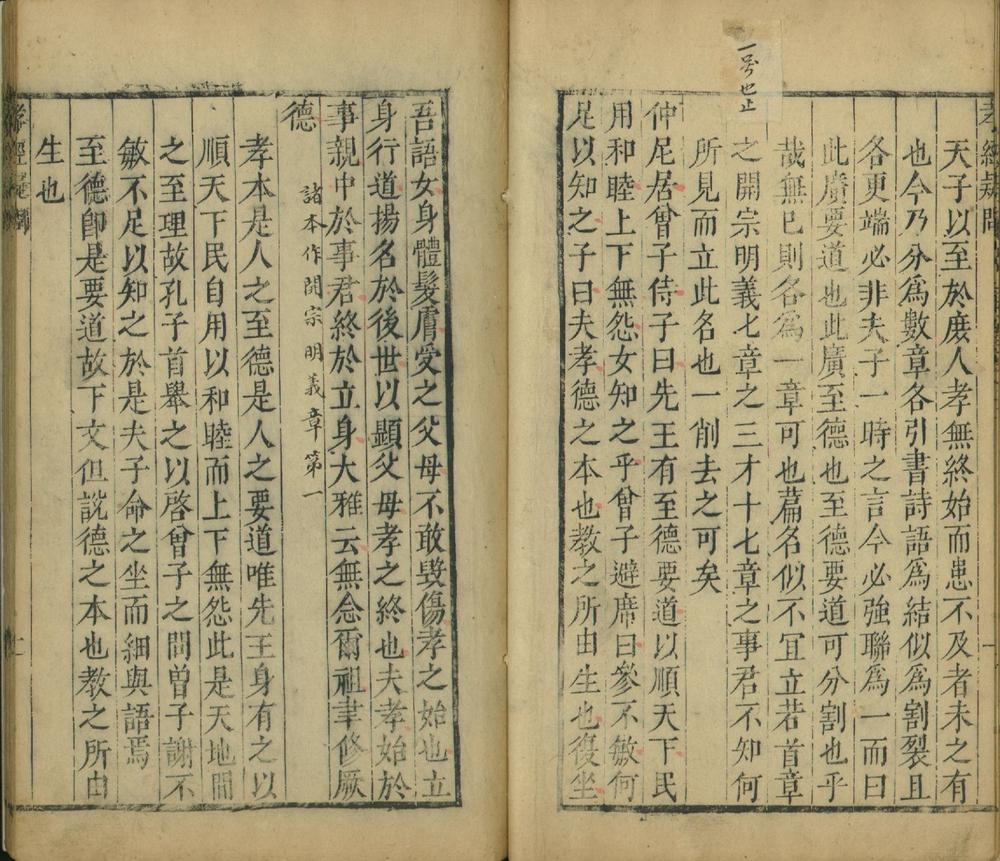 一号也止
孝經疑問
天子以至於庻人孝無終始而患不及者未之有
也今乃分爲數章各引書詩語爲結似爲割裂且
各更端必非夫子一時之言今必強聯爲一而曰
此廣要道也此廣至德也至德要道可分割也乎
哉無已則名爲一章可也萹名似不宜立若首章
之開宗明義七章之三才十七章之事君不知何
所見而立此名也一削去之可矣
仲尼居曾子侍子曰先王有至德要道以順天下民
用和睦上下無怨女知之乎曾子避席曰參不敏何
足以知之子曰夫孝德之本也教之所由生也復坐
吾語女身體髮膚受之父母不敢毀傷孝之始也立
身行道揚名於後世以顯父母孝之終也夫孝始於
事親中於事君終於立身大雅云無念爾祖聿修厥
德
諸本作開宗明義章第一
孝本是人之至德是人之要道唯先王身有之以
順天下民自用以和睦而上下無怨此是天地間
之至理故孔子首舉之以啓曾子之問曾子謝不
敏不足以知之於是夫子命之坐而細與語焉
至德卽是要道故下文但說德之本也教之所由
生也